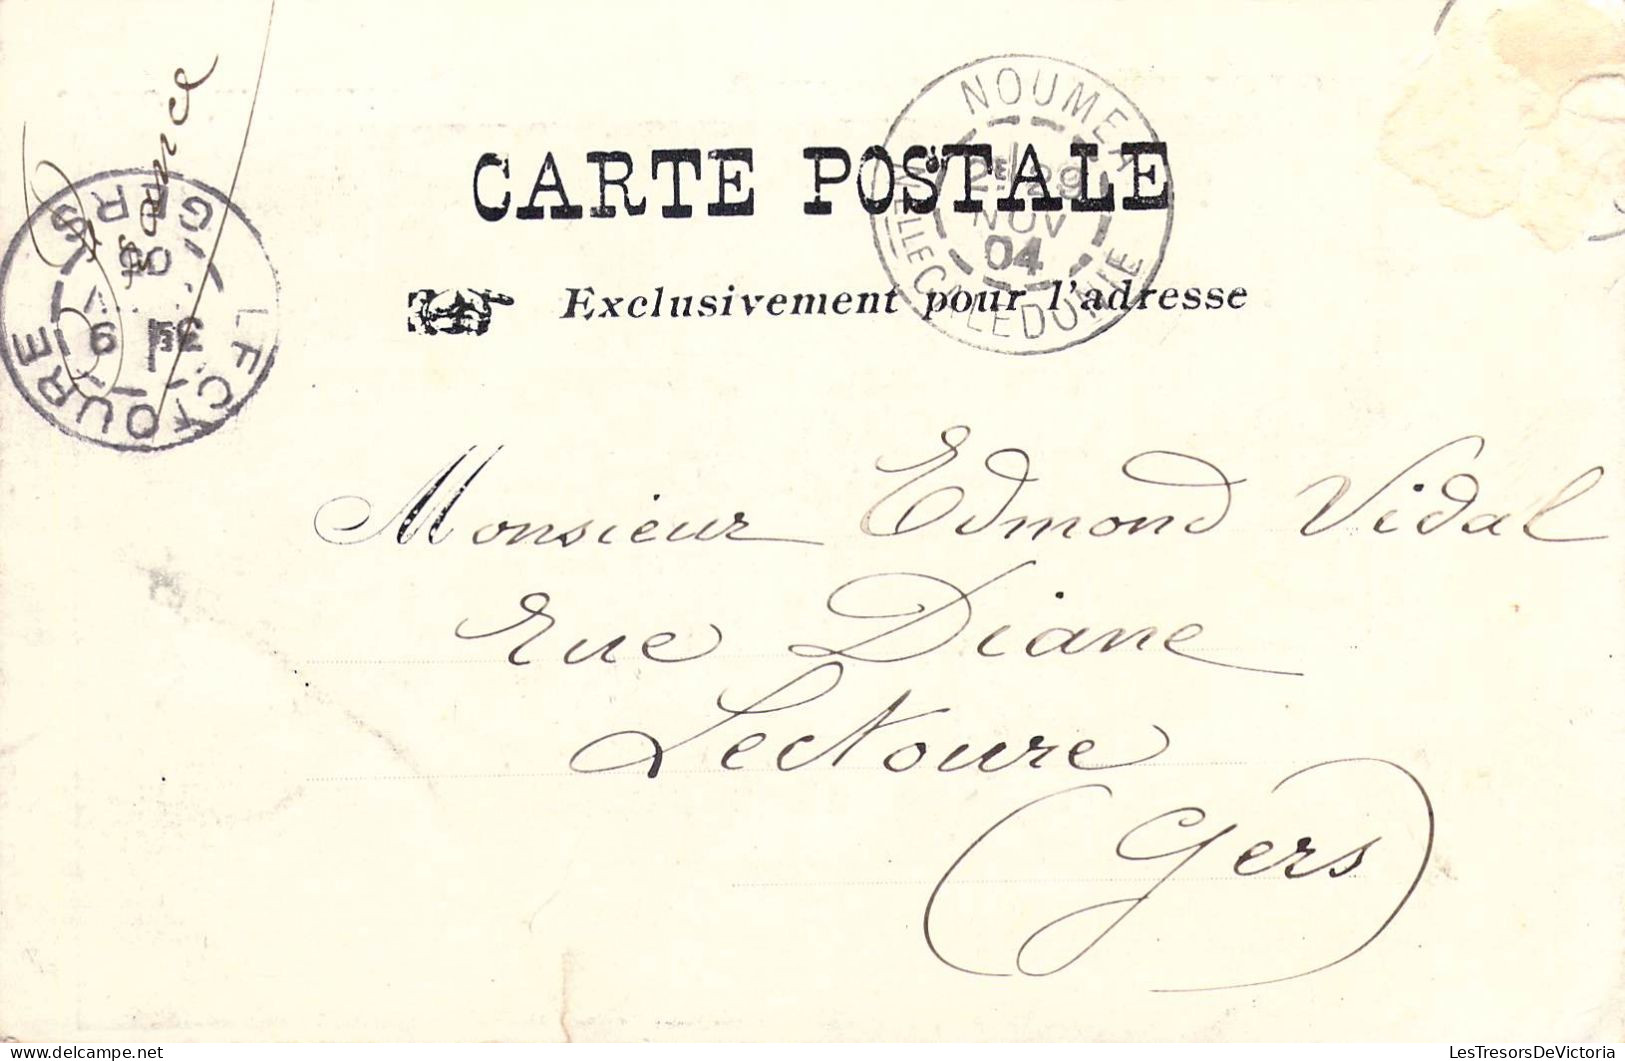 CARTE POSTALE
Exclusivement pour l'adresse
NOUMEA
2E 29
NOV
04
NELLE CALEDONIE
LECTOURE
3E 9
05
GERS
France
Monsieur Edmond Vidal
Rue Diane
Lectoure
(Gers)
LesTresorsDeVictoria